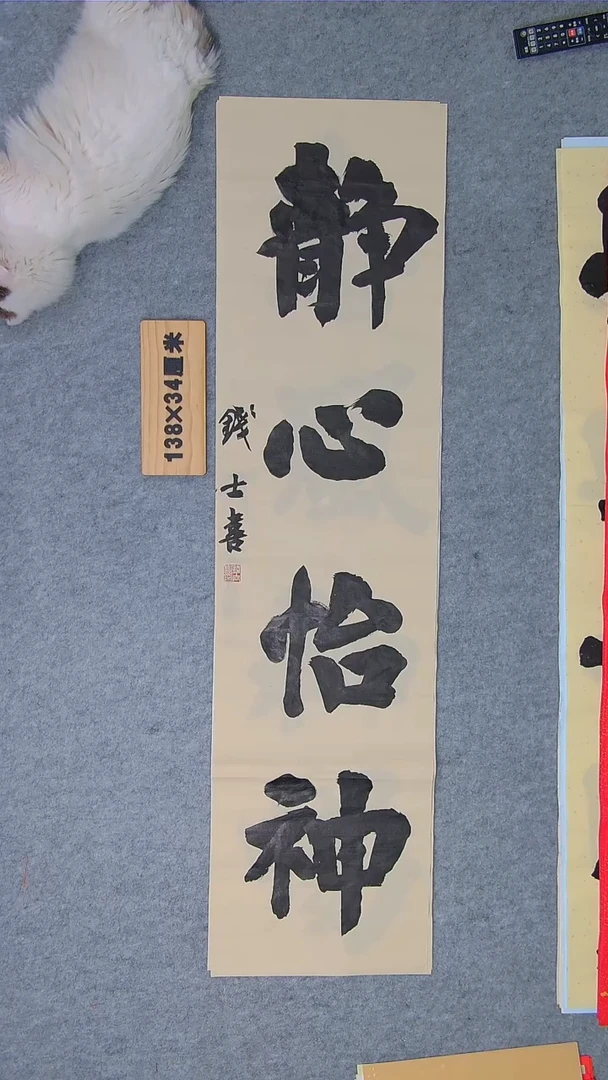 静心怡神
錢士喜
138×34厘米